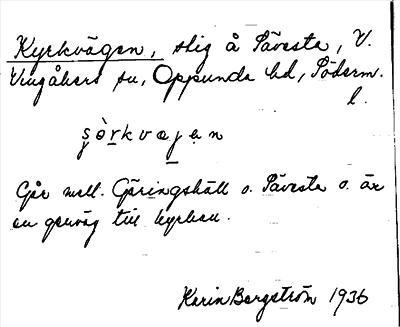 Kyrkvägen, stig å Sävesta, V.
Vingåkers sn, Oppunda hd, Söderm.
l.
Går mell. Göringshäll o. Sävesta o. är
en genväg till kyrkan.
Karin Bergström 1936